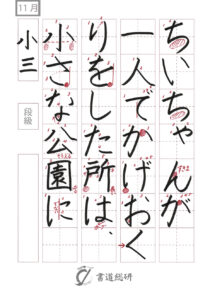 ちいちゃんが
一人でかげおく
りをした所は、
小さな公園に
11月
小三
段級
書道総研